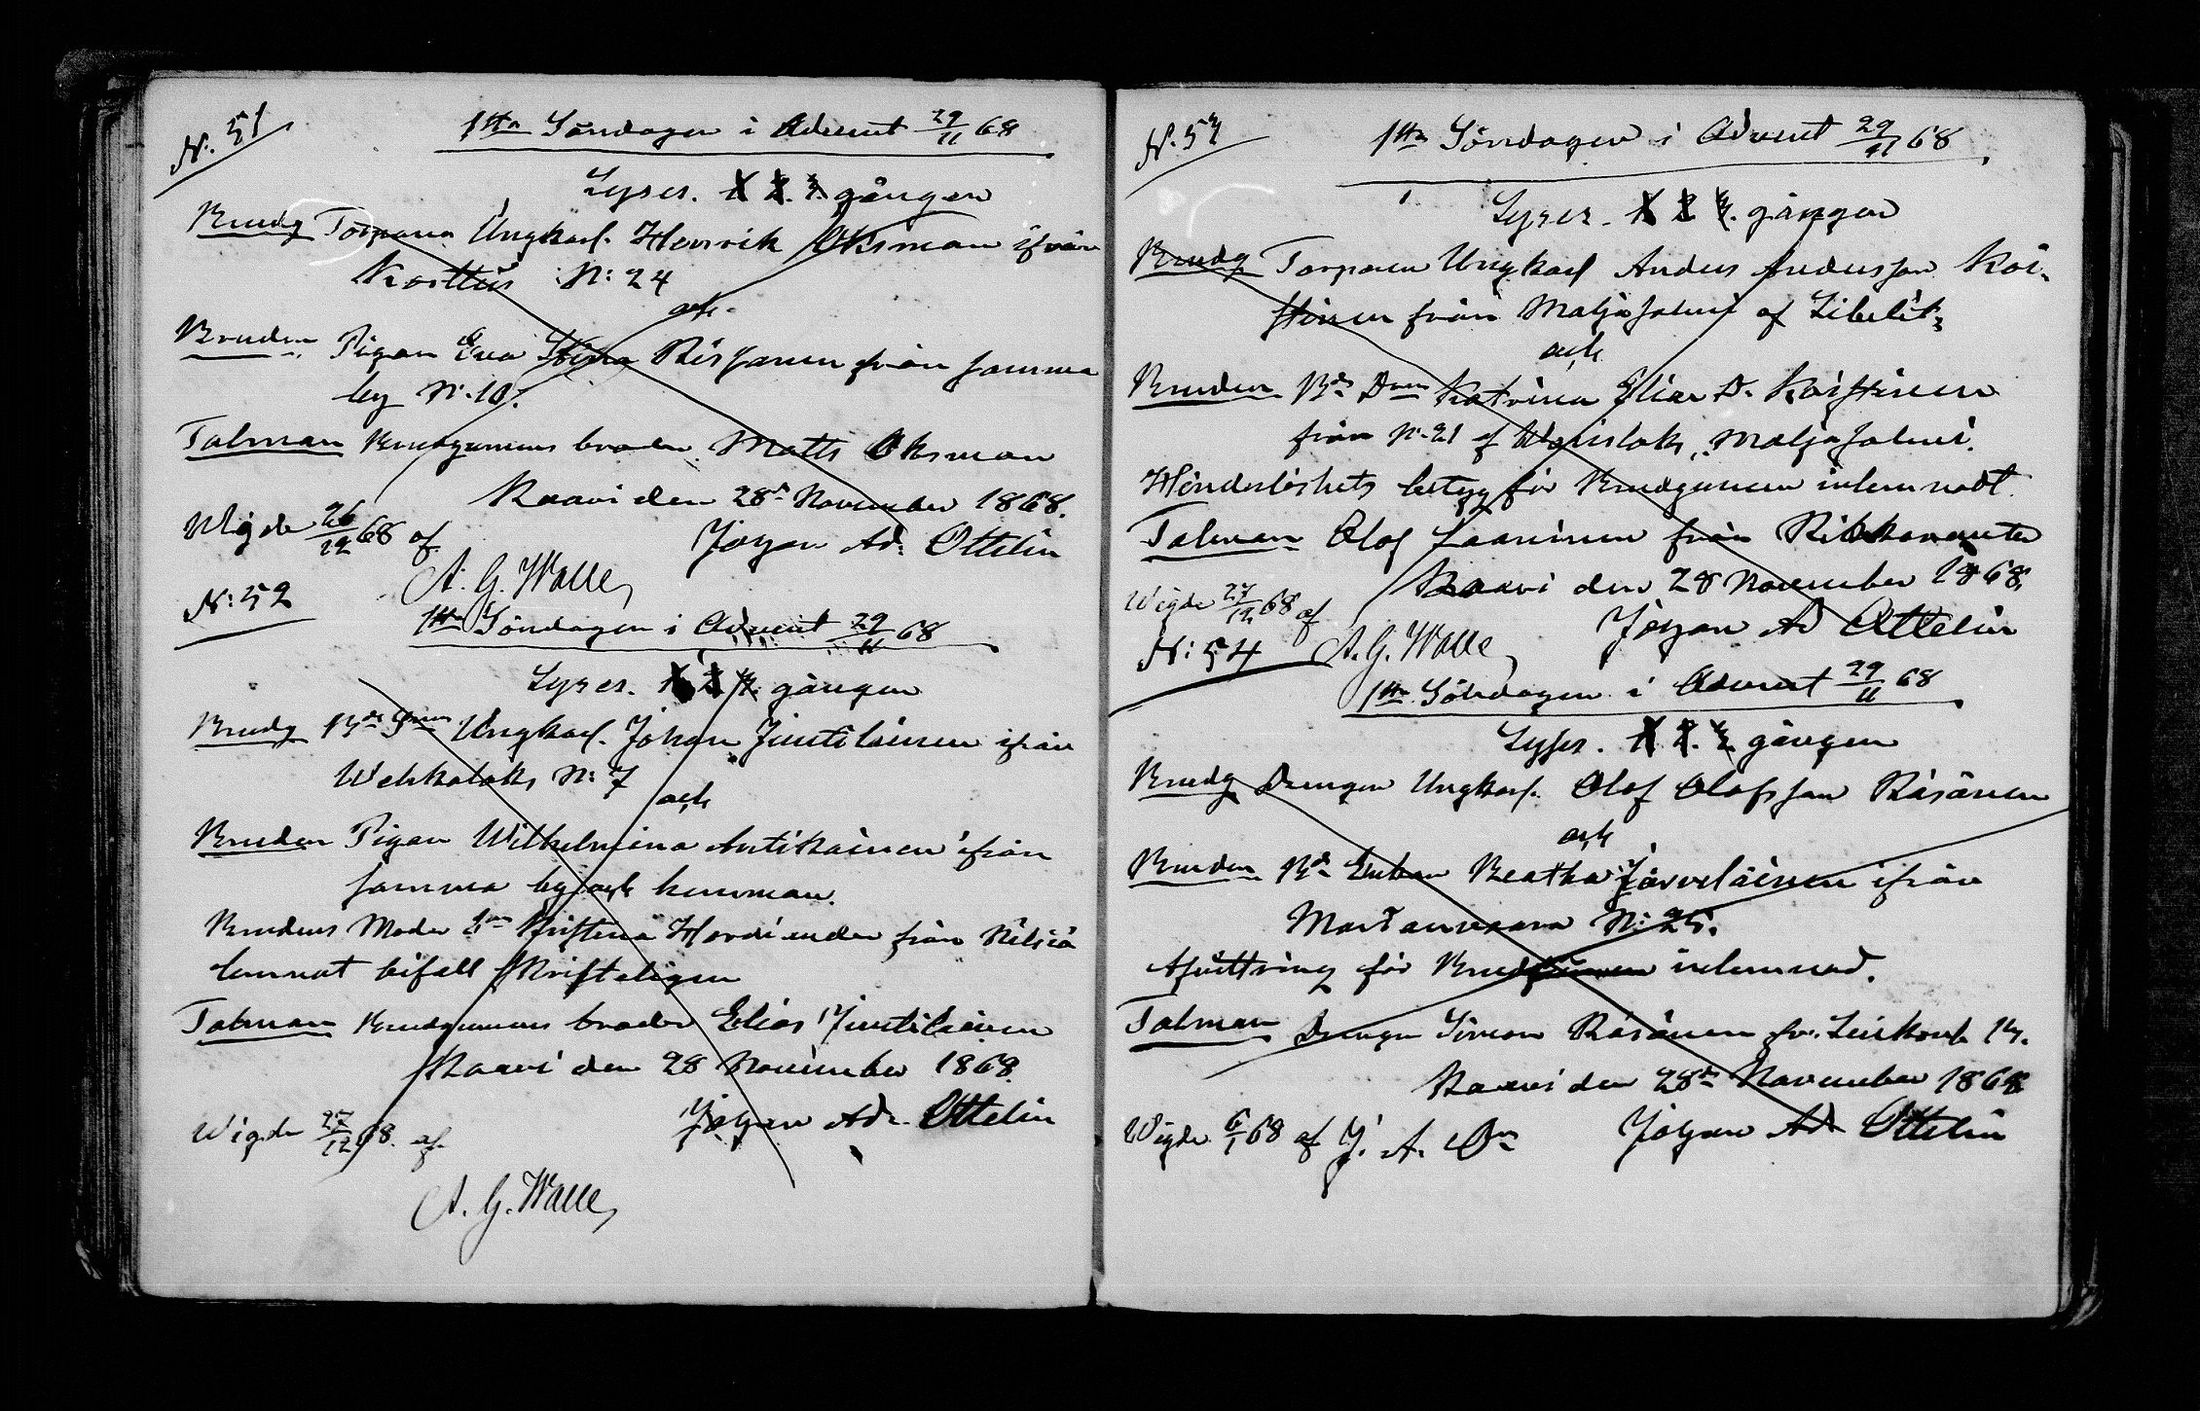 N: 51
1sta Söndagen i Advent 29/11 68
Lyses. 1 2. 3. gången
Brudg Torparen Ungkarl. Henrik Oksman ifrån
Karttus N: 24
och
Bruden Pigan Eva Stina Räsänen från samma
by N: 10.
Talman Brudgumens broder Matts Oksman
Kaavi den 28de November 1868.
Wigde 26/12 68 af
Jöran Ad: Ottelin
A. G. Walle
N: 52
1sta Söndagen i Advent 29/11 68
Lyses. 1 2 3. gången
Brudg Bde Sonen Ungkarl. Johan Juutilainen ifrån
Wehkalaks N: 7
och
Bruden Pigan Wilhelmina Antikainen ifrån
samma by och hemman.
Brudens Moder Kristina från Nilsiä
lemnat bifall skrifteligen
Talman Brudgumens broder Elias Juutilainen
Kaavi den 28 November 1868.
Wigde 27/12 68. af
Jöran Ad. Ottelin
A. G. Walle
N. 53
1sta Söndagen i Advent 29/11 68
Lyses. 1 2 3. gången
Brudg Torparen Ungkarl Anders Andersson Koi-
stinen från Maljasalmi af Libelits
och
Bruden Bde Dren Katrina Elias D. Koistinen
från N: 21 af Maljasalmi.
Hinderlöshets betyg för Brudgumen inlemnadt.
Talman Olof från
Kaavi den 28 November 1868
Wigde 27/12 68 af
Jöran Ad Ottelin
A. G. Walle
N: 54
1sta Söndagen i Advent 29/11 68
Lyses. 1 2. 3. gången
Brudg Drengen Ungkarl. Olof Olofsson Räsänen
och
Bruden Bde Enkan Beatha Järveläinen ifrån
Martanvaara N: 25.
Afvittring för inlemnad.
Talman Drengen Simon Räsänen fr.
Kaavi den 28de November 1868
Wigde 6/1 68 af J. A. On
Jöran Ad Ottelin